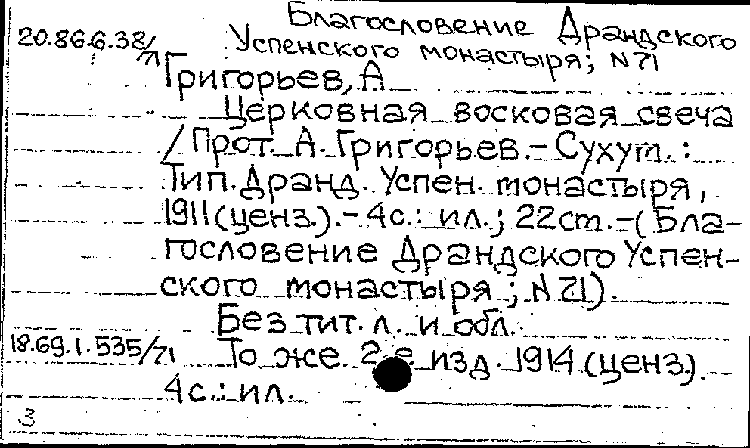 Благословение Драндского
20.86.6.38/71 Успенского монастыря; N71
Григорьев, А
Церковная восковая свеча
/Прот. А. Григорьев.- Сухум. :
Тип. Дранд. Успен. монастыря,
1911(ценз.).- 4с.: ил.; 22см.-(Бла-
гословение Драндского Успен-
ского монастыря; N 71).
Без тит. л. и обл.
18.69.1.535/71 То же. 2-е изд. 1914 (ценз.).
4 с.: ил.
3